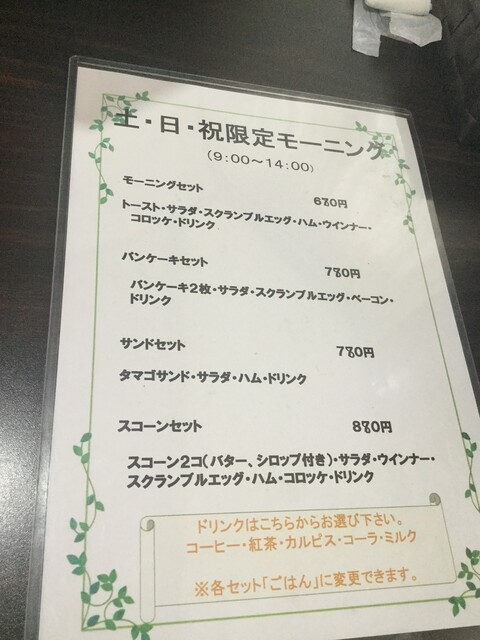 土・日・祝限定モーニング
(9:00～14:00)
モーニングセット 680円
トースト・サラダ・スクランブルエッグ・ハム・ウインナー・
コロッケ・ドリンク
パンケーキセット 780円
パンケーキ2枚・サラダ・スクランブルエッグ・ベーコン・
ドリンク
サンドセット 780円
タマゴサンド・サラダ・ハム・ドリンク
スコーンセット 880円
スコーン2コ(バター、シロップ付き)・サラダ・ウインナー・
スクランブルエッグ・ハム・コロッケ・ドリンク
ドリンクはこちらからお選び下さい。
コーヒー・紅茶・カルピス・コーラ・ミルク
※各セット「ごはん」に変更できます。